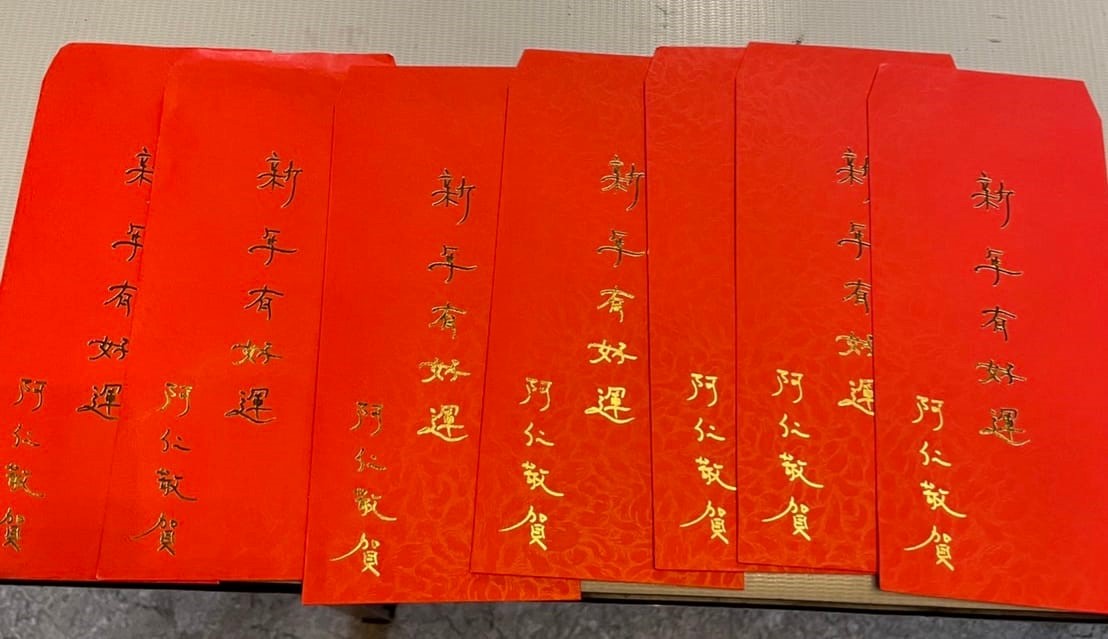 新年有好運
阿仁敬賀
新年有好運
阿仁敬賀
新年有好運
阿仁敬賀
新年有好運
阿仁敬賀
阿仁敬賀
新年有好運
阿仁敬賀
新年有好運
阿仁敬賀